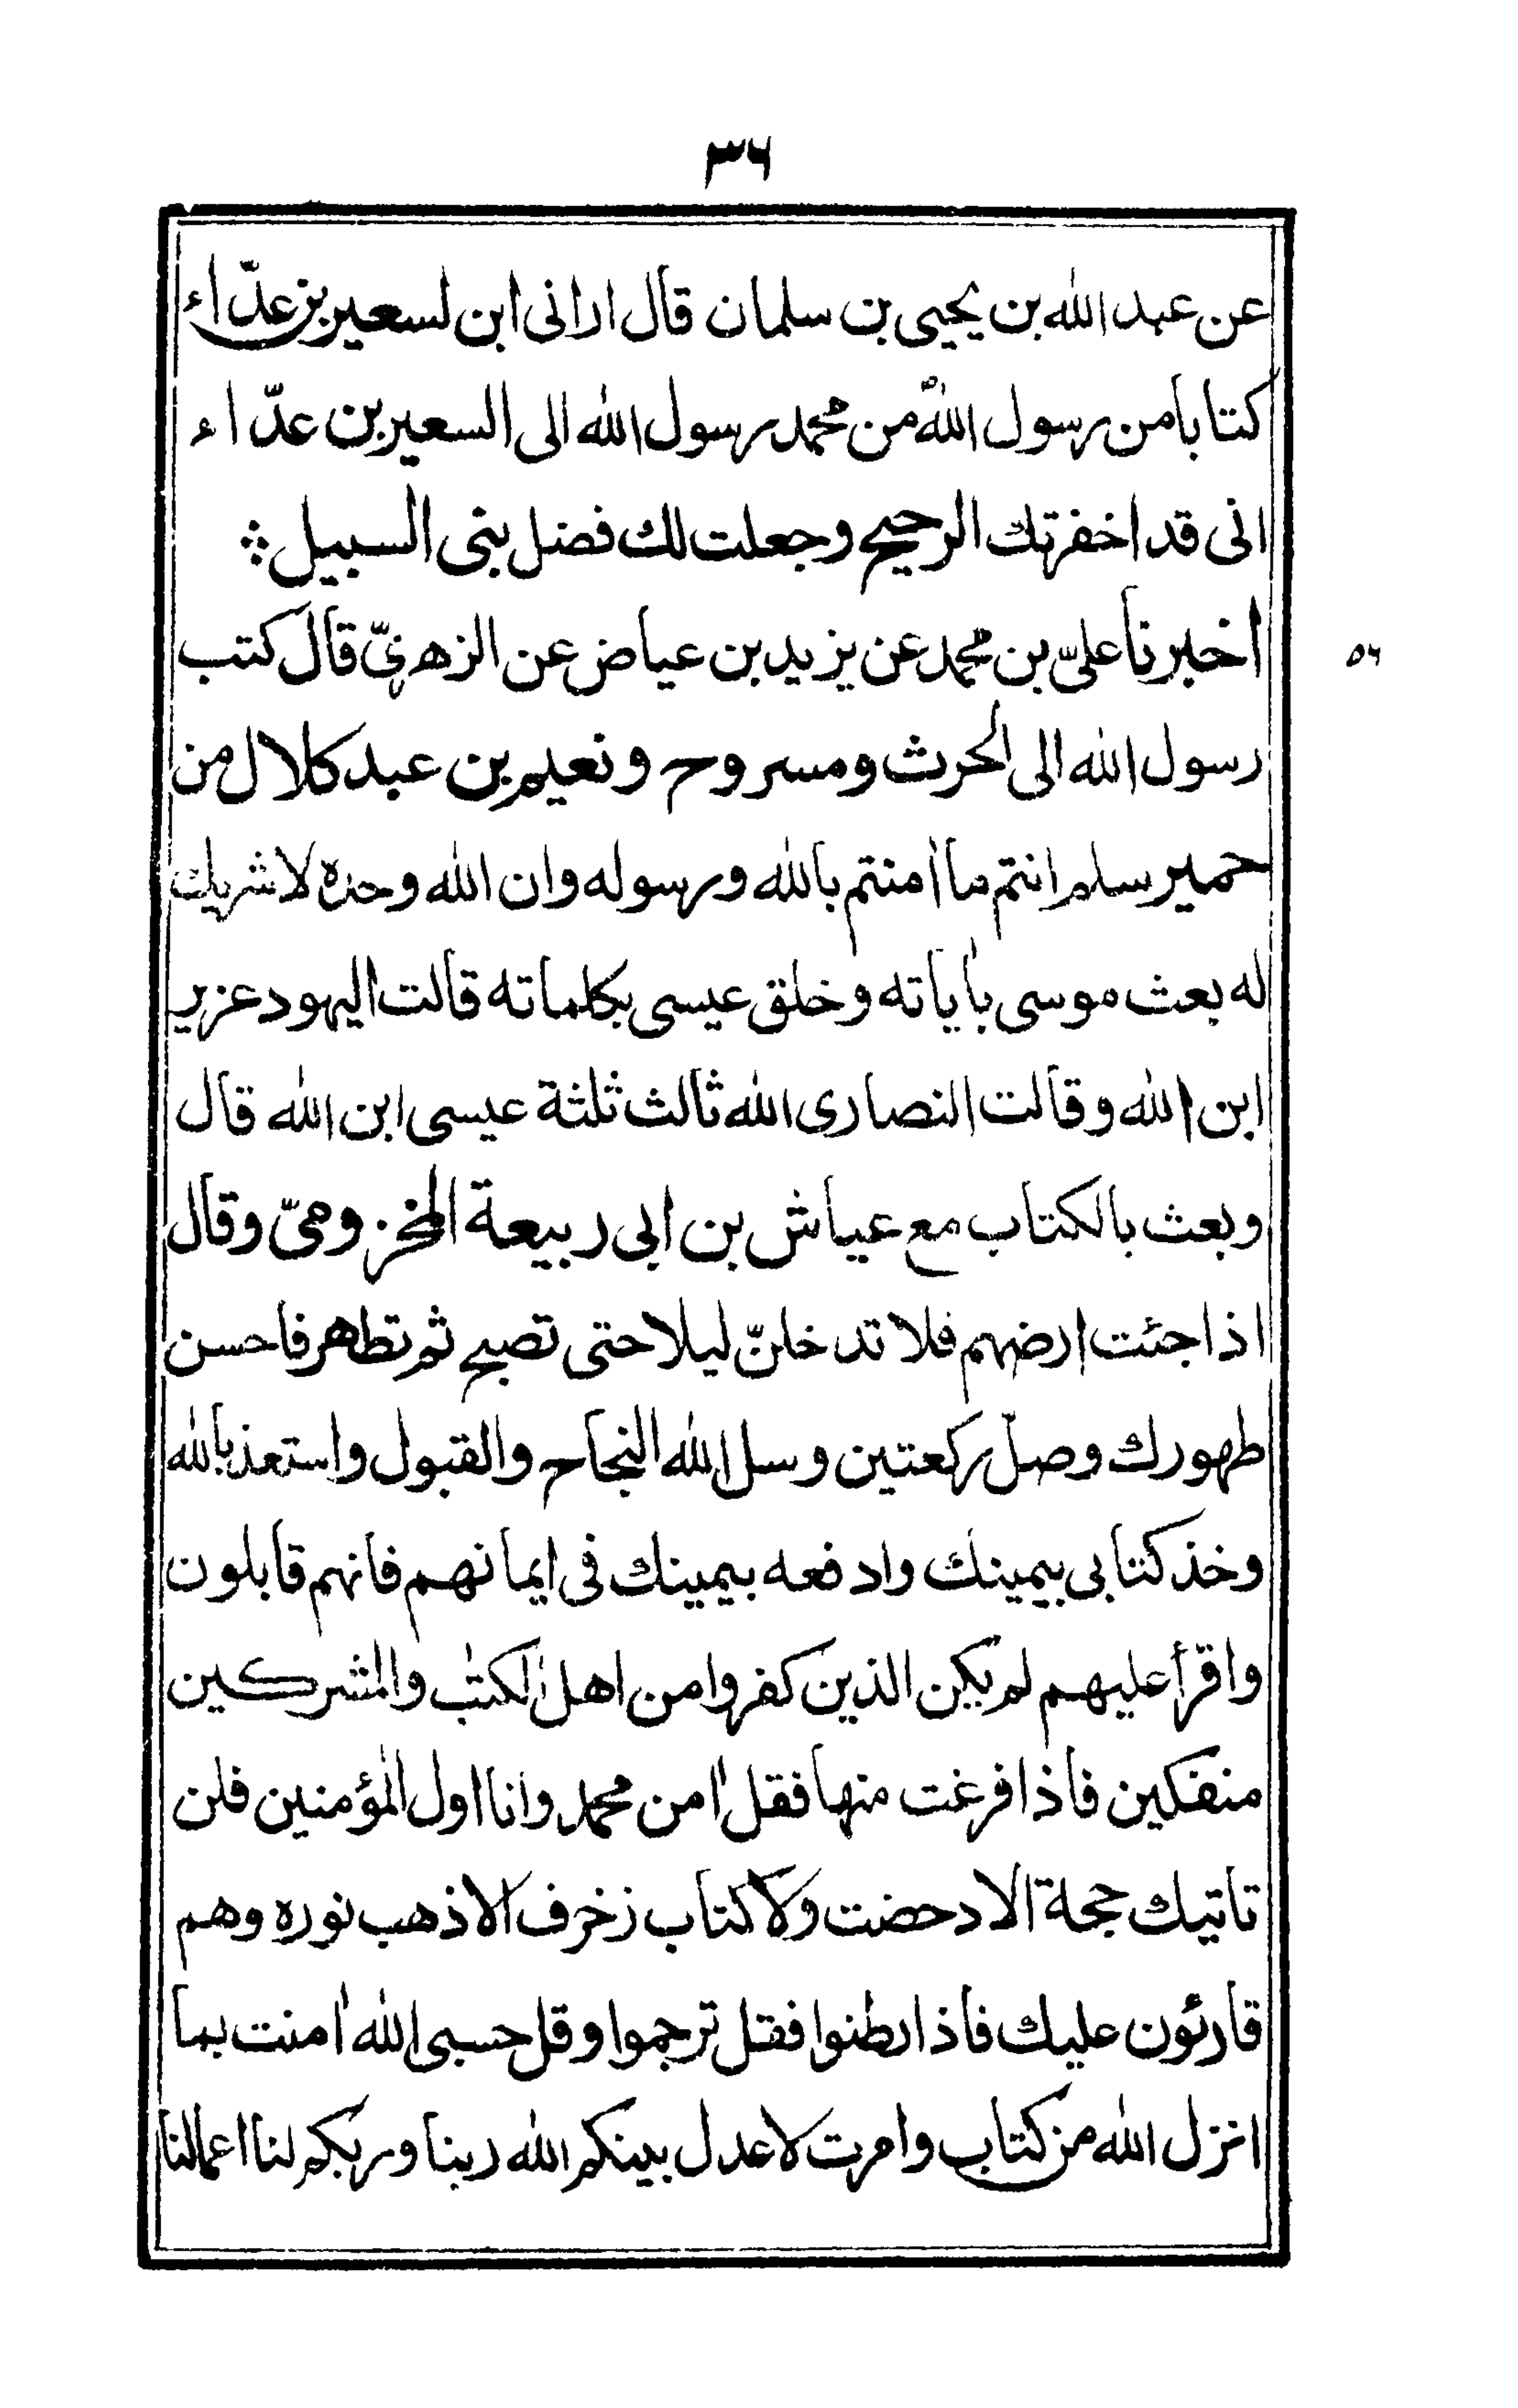 ٣٦
عن عبد الله بن يحيى بن سلمان قال ارانى ابن لسعير بن عدّاء
كتابا من رسول اللهؐ من محمد رسول الله الى السعير بن عدّاء
انى قد اخفرتك الرحيح وجعلت لك فضل بنى السبيل ؞
اخبرنا علىّ بن محمد عن يزيد بن عياض عن الزهرىّ قال كتب
٥٦
رسول الله الى الحرث ومسروح ونعيم بن عبد كلال من
حمير سلم انتم ما اٰمنتم بالله ورسوله وان الله وحده لا شريك
له بعث موسى باٰياته وخلق عيسى بكلماته قالت اليهود عزير
ابن الله وقالت النصارى الله ثالث ثلثة عيسى ابن الله قال
وبعث بالكتاب مع عياش بن ابى ربيعة المخزومىّ وقال
اذا جئت ارضهم فلا تدخلنّ ليلا حتى تصبح ثم تطاهر فاحسن
طهورك وصلّ ركعتين وسل الله النجاح والقبول واستعذ بالله
وخذ كتابى بيمينك وادفعه بيمينك فى ايمانهم فانهم قابلون
واقرأ عليهم لم يكن الذين كفروا من اهل الكتٰب والمشركين
منفكين فاذا فرغت منها فقل اٰمن محمد وانا اول المؤمنين فلن
تاتيك حجة الا دحضت ولا كتاب زخرف الا ذهب نوره وهم
قارئون عليك فاذا رطنوا فقل ترجموا وقل حسبى الله اٰمنت بما
انزل الله من كتاب وامرت لاعدل بينكم الله ربنا وربكم لنا اعمالنا